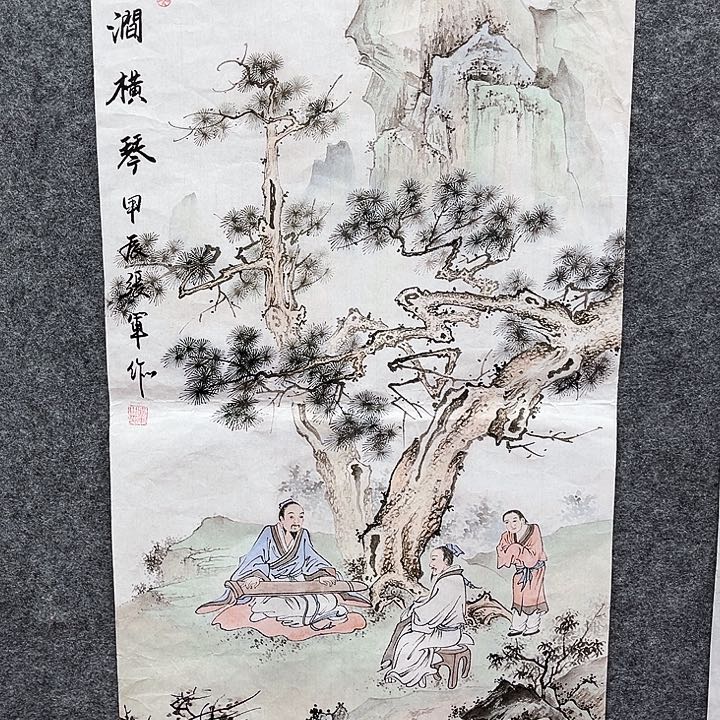 澗橫琴甲辰張軍作